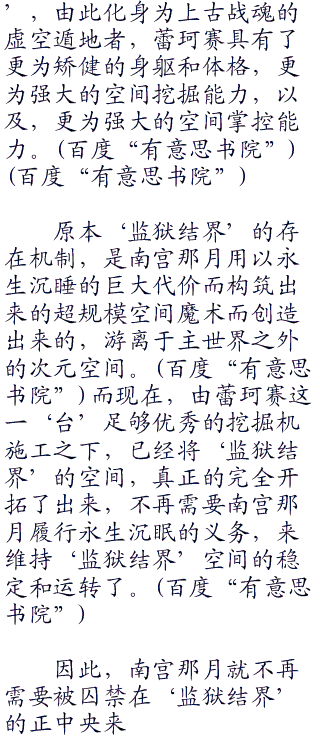 ’，由此化身为上古战魂的
虚空遁地者，蕾珂赛具有了
更为矫健的身躯和体格，更
为强大的空间挖掘能力，以
及，更为强大的空间掌控能
力。(百度“有意思书院”)
(百度“有意思书院”)
原本‘监狱结界’的存
在机制，是南宫那月用以永
生沉睡的巨大代价而构筑出
来的超规模空间魔术而创造
出来的，游离于主世界之外
的次元空间。(百度“有意思
书院”)而现在，由蕾珂赛这
一‘台’足够优秀的挖掘机
施工之下，已经将‘监狱结
界’的空间，真正的完全开
拓了出来，不再需要南宫那
月履行永生沉眠的义务，来
维持‘监狱结界’空间的稳
定和运转了。(百度“有意思
书院”)
因此，南宫那月就不再
需要被囚禁在‘监狱结界’
的正中央来